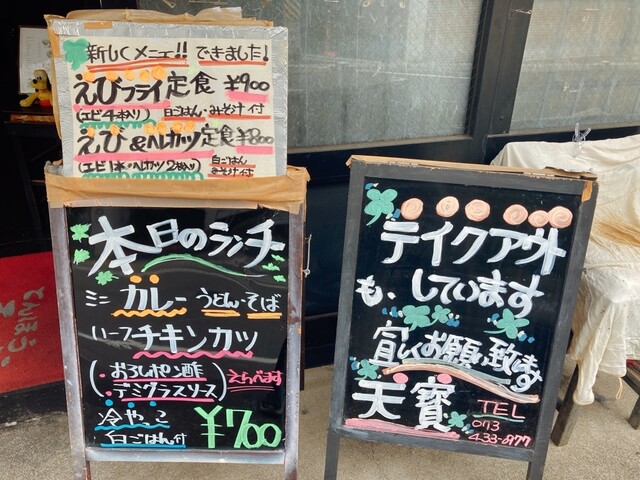 新しくメニュー!! できました!
えびフライ定食 ¥900
(エビ4本入り) 白ごはん・みそ汁付
えび&ヘレカツ定食 ¥800
(エビ1本・ヘレカツ2枚入り) 白ごはん みそ汁付
本日のランチ
ミニ カレー うどん・そば
ハーフチキンカツ
(・おろしポン酢
・デミグラスソース) えらべます
冷やっこ
白ごはん付 ¥700
テイクアウト
も、しています
宜しくお願い致します
天寶 TEL
073
433-8777